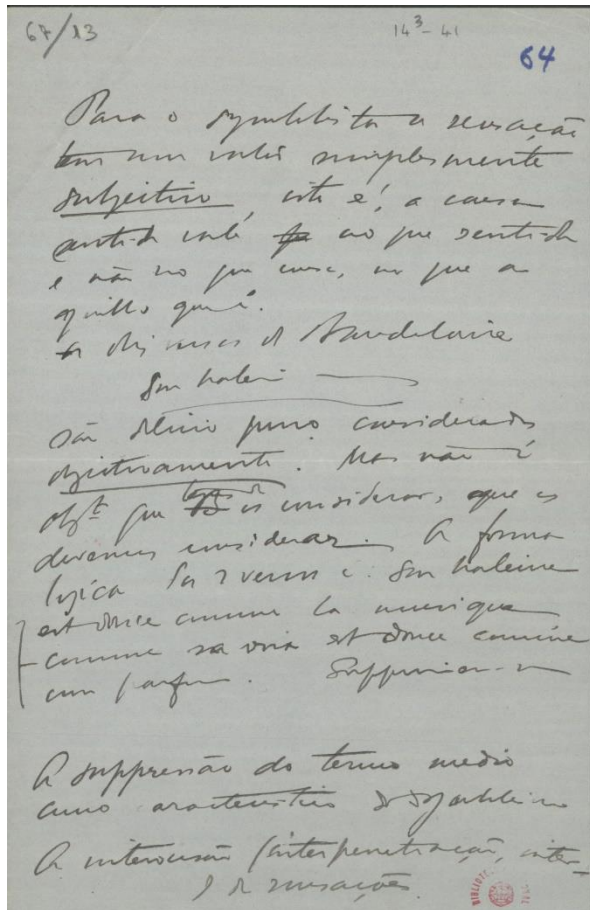 67/13
14³-41
64
Para o symbolista a sensação
tem um valor simplesmente
subjectivo, isto é, a cousa
sentida vale no que sentida
e não no que cousa, no que a
quillo que é.
Os dois versos de Baudelaire
Son haleine
são delirio puro considerados
objectivamente. Mas não é
objte que os considerar, que os
devemos considerar. A forma
logica dos 2 versos é: Son haleine
est douce comme la musique
comme sa voix est douce comme
un parfum. Supprimiu-se
A suppressão do termo medio
como caracteristico do symbolismo
A interseccão (interpenetração, inter-
) de sensações.